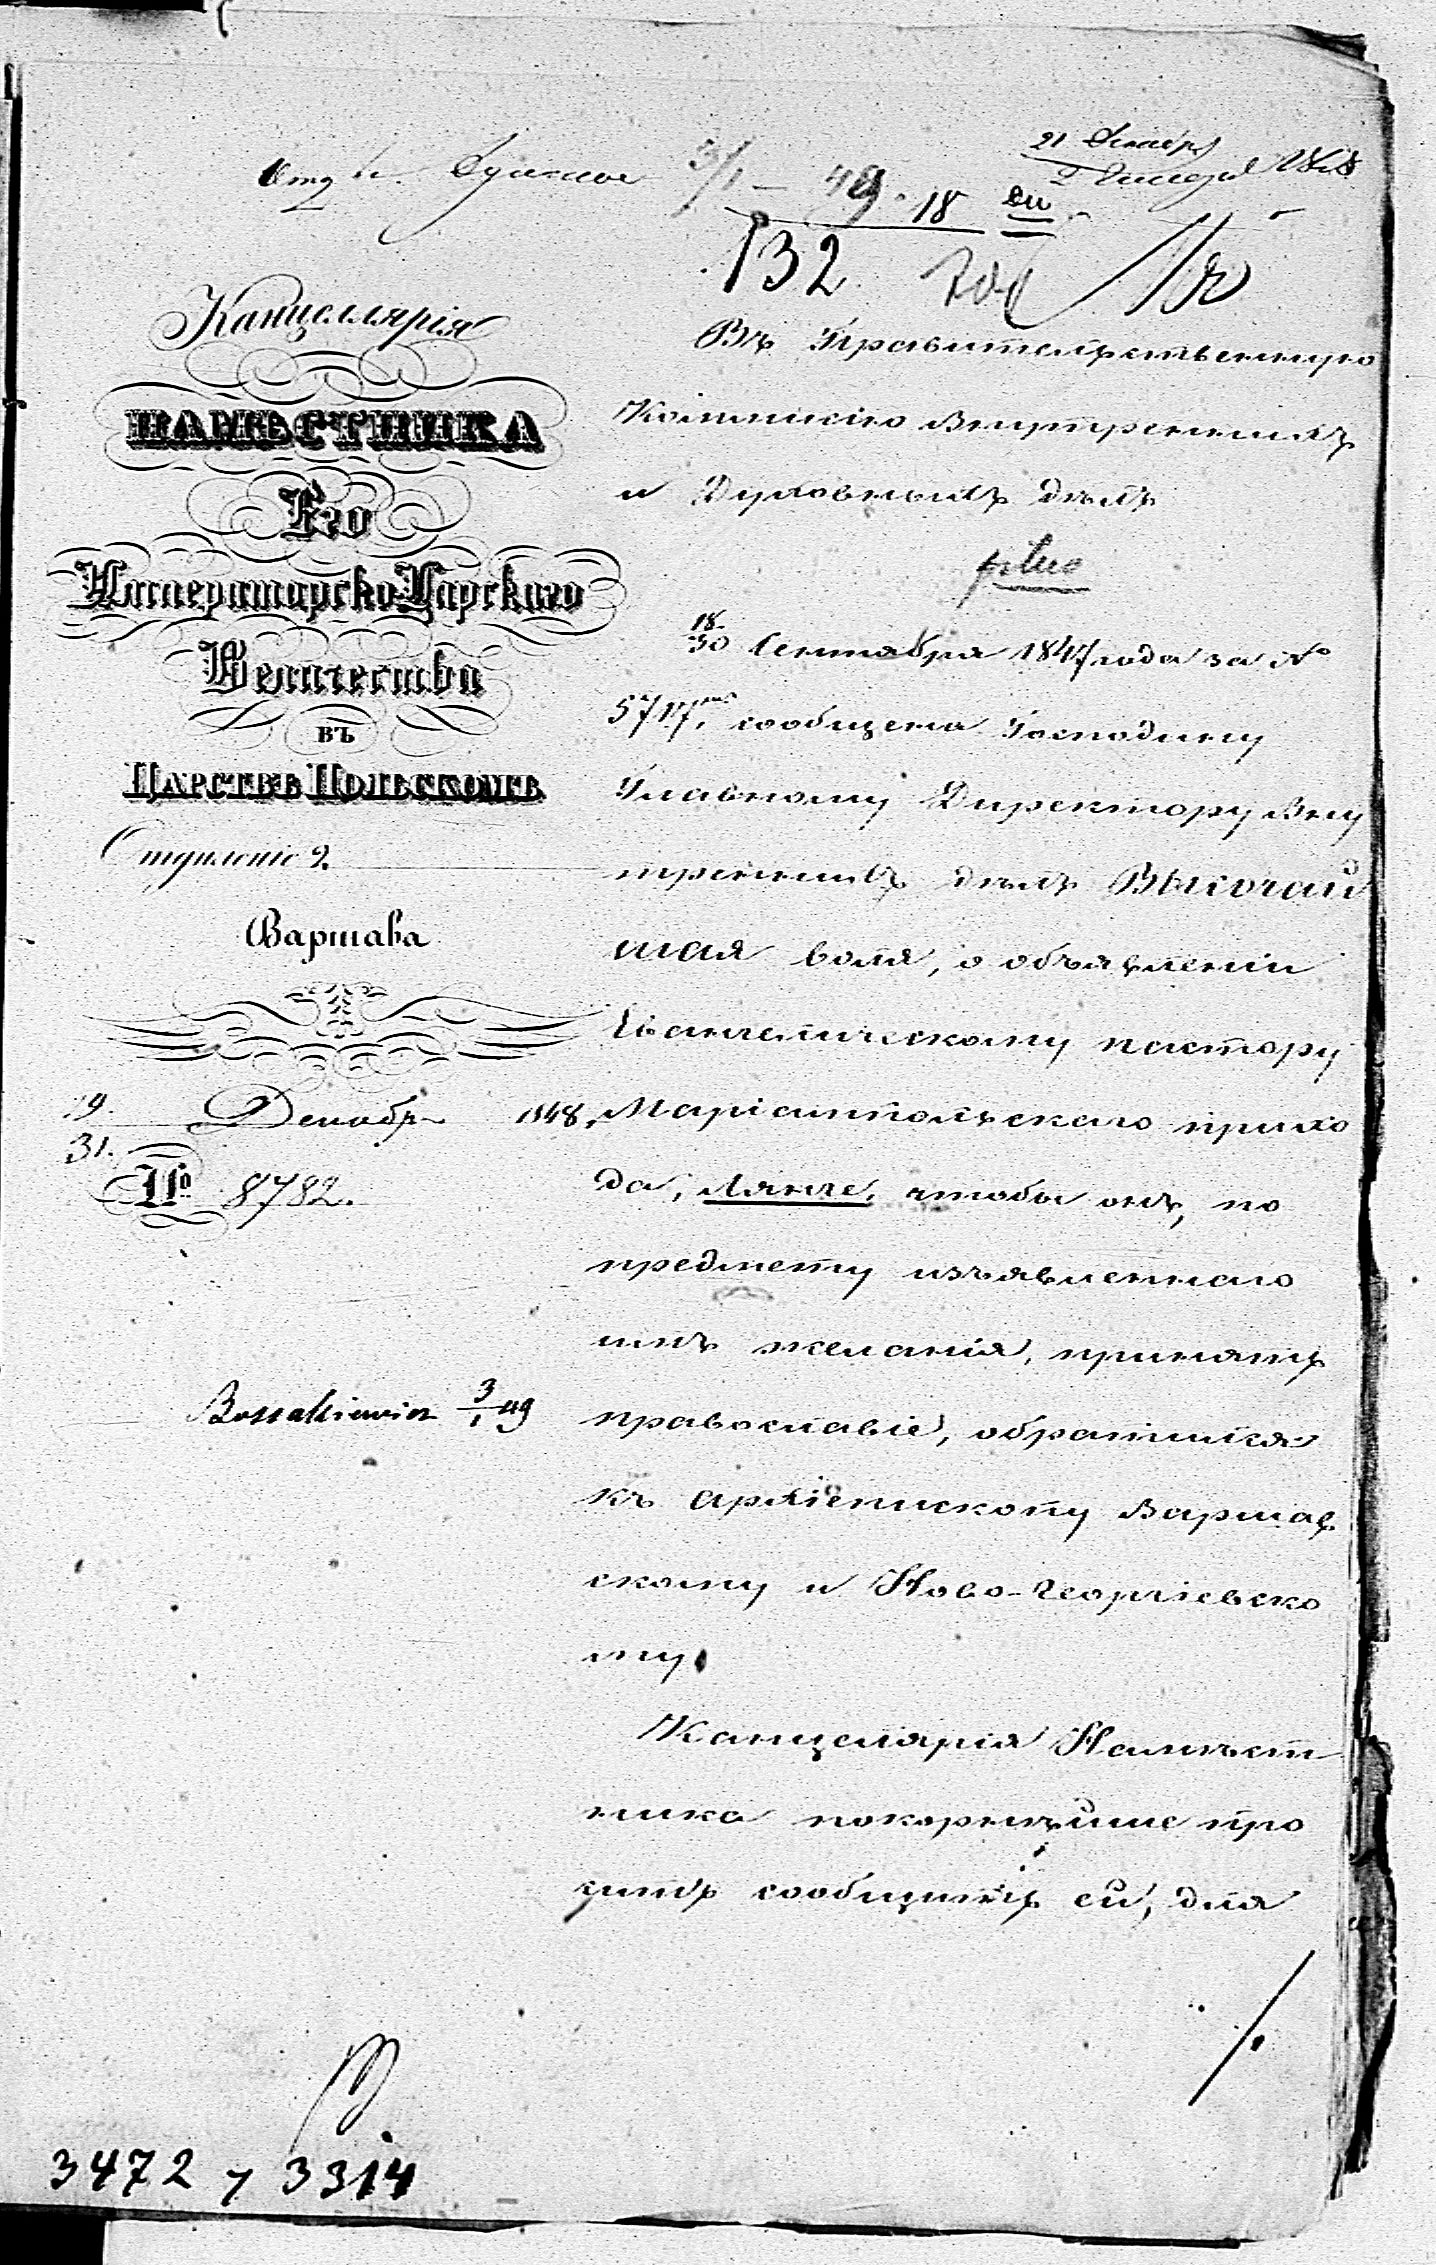 3/1 – 49. 18
132
Канцеллярія
НАМѢСТНИКА
Его
Императорско-Царскаго
Величества
въ
ЦАРСТВѢ ПОЛЬСКОМЪ
Отдѣленіе 2.
Варшава
19.
31. Декабр 1848,
№ 8782.
Въ Правительственную
Коммисію Внутреннихъ
и Духовныхъ дѣлъ
18
30 Сентября 1847 года за №
5717, сообщена Господину
Главному Директору Вну
треннихъ дѣлъ Высочай
шая воля, о объявленіи
Евангелическому пастору
Маріампольскаго прихо
да, Лянге, чтобы онъ, по
предмету изъявленнаго
имъ желанія, принять
православіе, обратился
къ архіепископу Варшав
скому и Ново-Георгіевско
му.
Канцелярія Намѣст
ника покорнѣйше про
ситъ сообщить ей, для
3/1 49
3472 7 3314